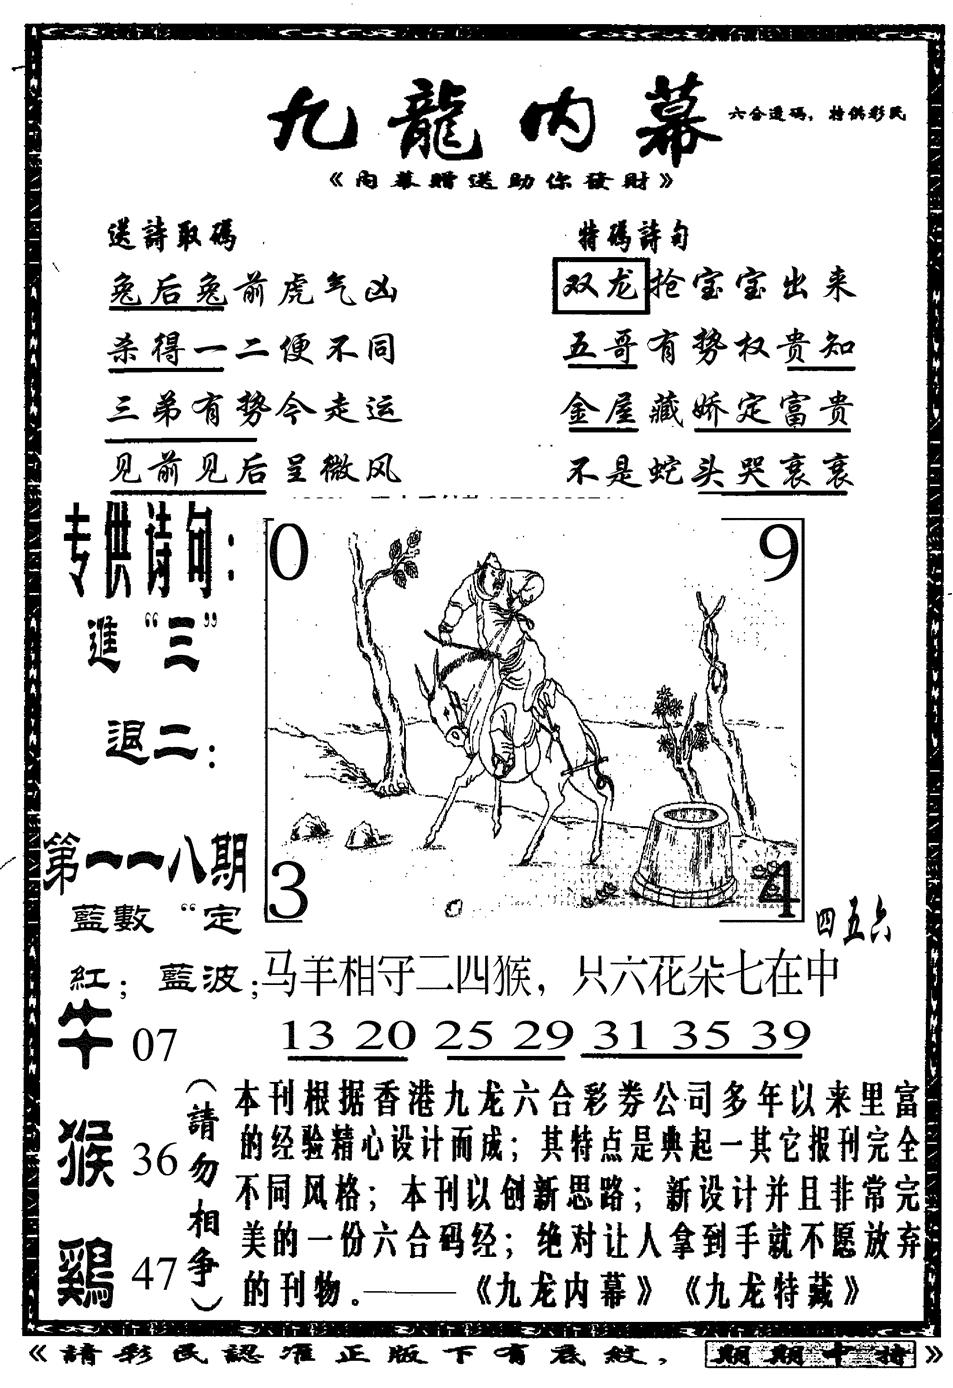 九龍内幕
六合透码，特供彩民
《内幕贈送助你發財》
送詩取碼
兔后兔前虎气凶
杀得一二便不同
三弟有势今走运
见前见后呈微风
特碼詩句
双龙抢宝宝出来
五哥有势权贵知
金屋藏娇定富贵
不是蛇头哭衰衰
专供诗句：
進“三”
退二：
第一一八期
藍數“定
紅；藍波；
牛 07
猴 36
鷄 47
0 9
3 4
四五六
马羊相守二四猴，只六花朵七在中
13 20 25 29 31 35 39
（請勿相争）
本刊根据香港九龙六合彩券公司多年以来里富
的经验精心设计而成；其特点是典起一其它报刊完全
不同风格；本刊以创新思路；新设计并且非常完
美的一份六合码经；绝对让人拿到手就不愿放弃
的刊物。——《九龙内幕》《九龙特藏》
《請彩民認准正版下有底紋，期期中特》